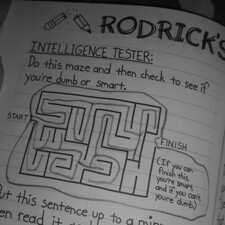 RODRICK'S
INTELLIGENCE TESTER:
Do this maze and then check to see if
you're dumb or smart.
START
FINISH
(If you can
finish this
you're smart
and if you can't
you're dumb.)
Put this sentence up to a
then read it